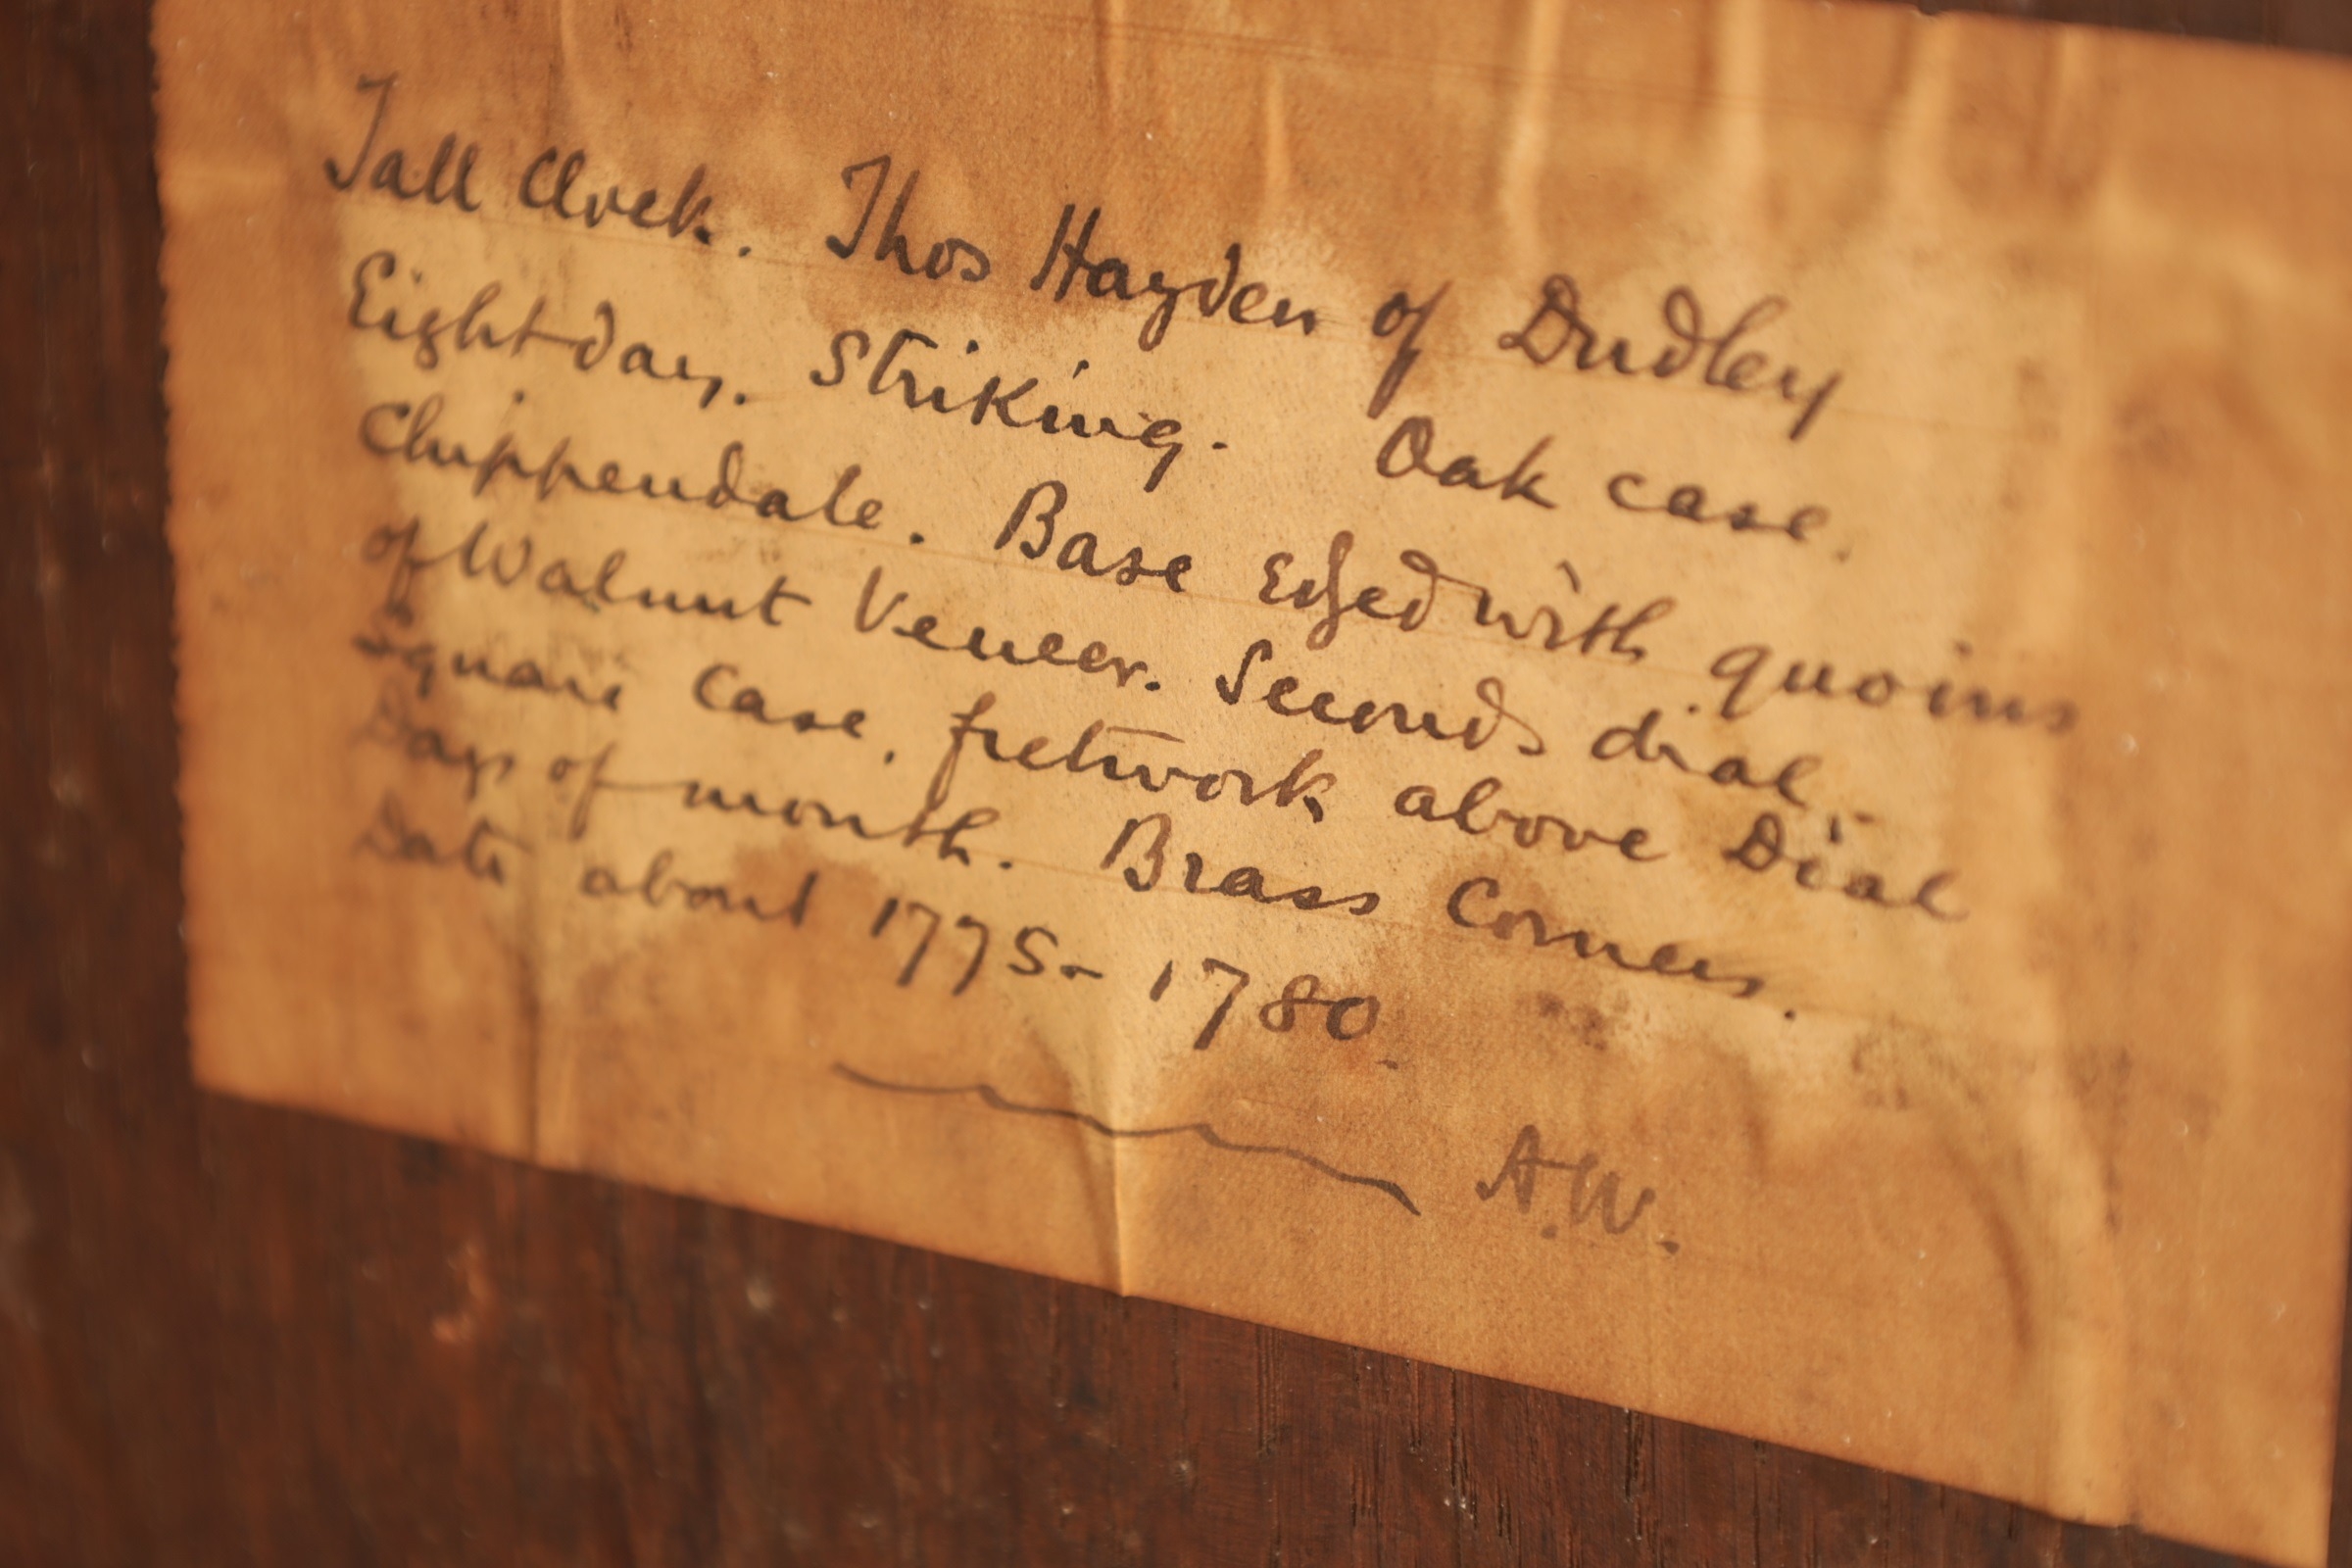 Tall Clock. Thos Hayden of Dudley
Eight day. Striking. Oak case.
Chippendale. Base Edged with quoins
of Walnut Veneer. Seconds dial -
Square Case, fretwork above Dial
Days of month. Brass Corners.
Date about 1775 - 1780.
A.W.